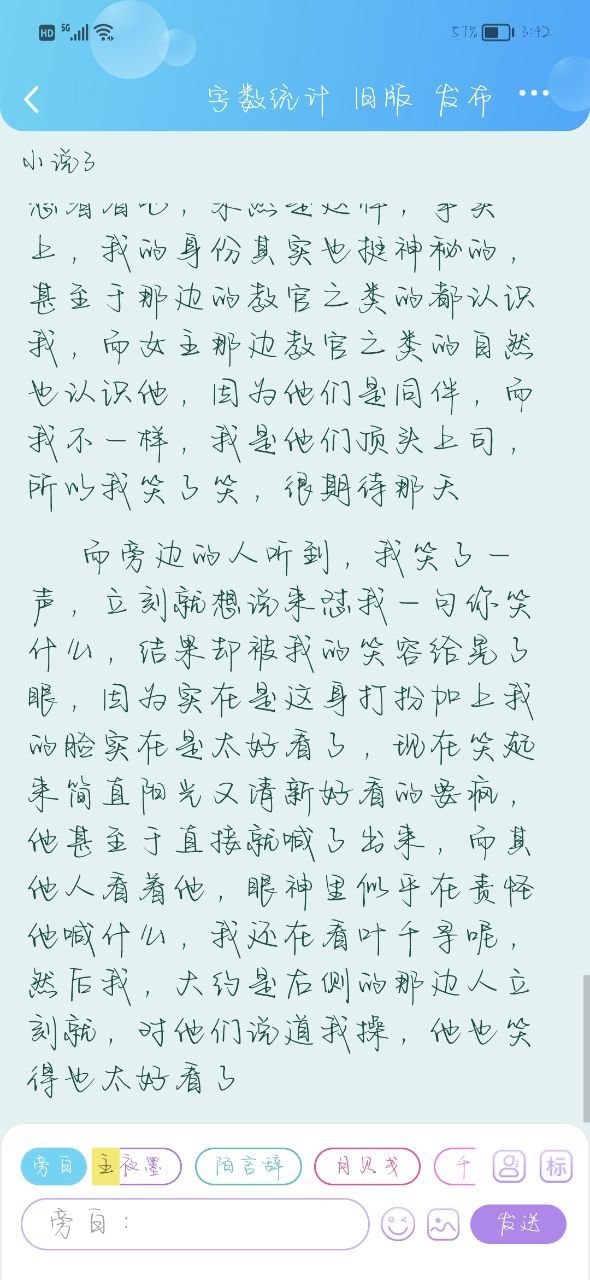 HD 5G 57% 3:42
字数统计 旧版 发布 •••
小说了
上，我的身份其实也挺神秘的，
甚至于那边的教官之类的都认识
我，而女主那边教官之类的自然
也认识他，因为他们是同伴，而
我不一样，我是他们顶头上司，
所以我笑了笑，很期待那天
而旁边的人听到，我笑了一
声，立刻就想说来怼我一句你笑
什么，结果却被我的笑容给晃了
眼，因为实在是这身打扮加上我
的脸实在是太好看了，现在笑起
来简直阳光又清新好看的要疯，
他甚至于直接就喊了出来，而其
他人看着他，眼神里似乎在责怪
他喊什么，我还在看叶千寻呢，
然后我，大约是右侧的那边人立
刻就，对他们说道我操，他也笑
得也太好看了
旁白 主 夜墨 陌言辞 月贝戋 千
标
旁白：
发送